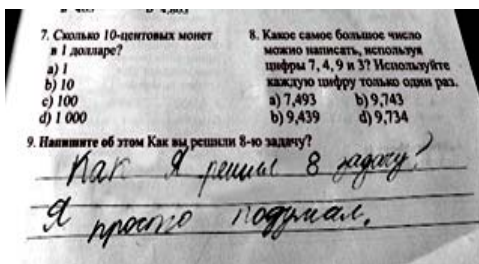 7. Сколько 10-центовых монет
в 1 долларе?
a) 1
b) 10
c) 100
d) 1 000
8. Какое самое большое число
можно написать, используя
цифры 7, 4, 9 и 3? Используйте
каждую цифру только один раз.
a) 7,493 b) 9,743
b) 9,439 d) 9,734
9. Напишите об этом Как вы решили 8-ю задачу?
Как Я решил 8 задачу?
Я просто подумал.